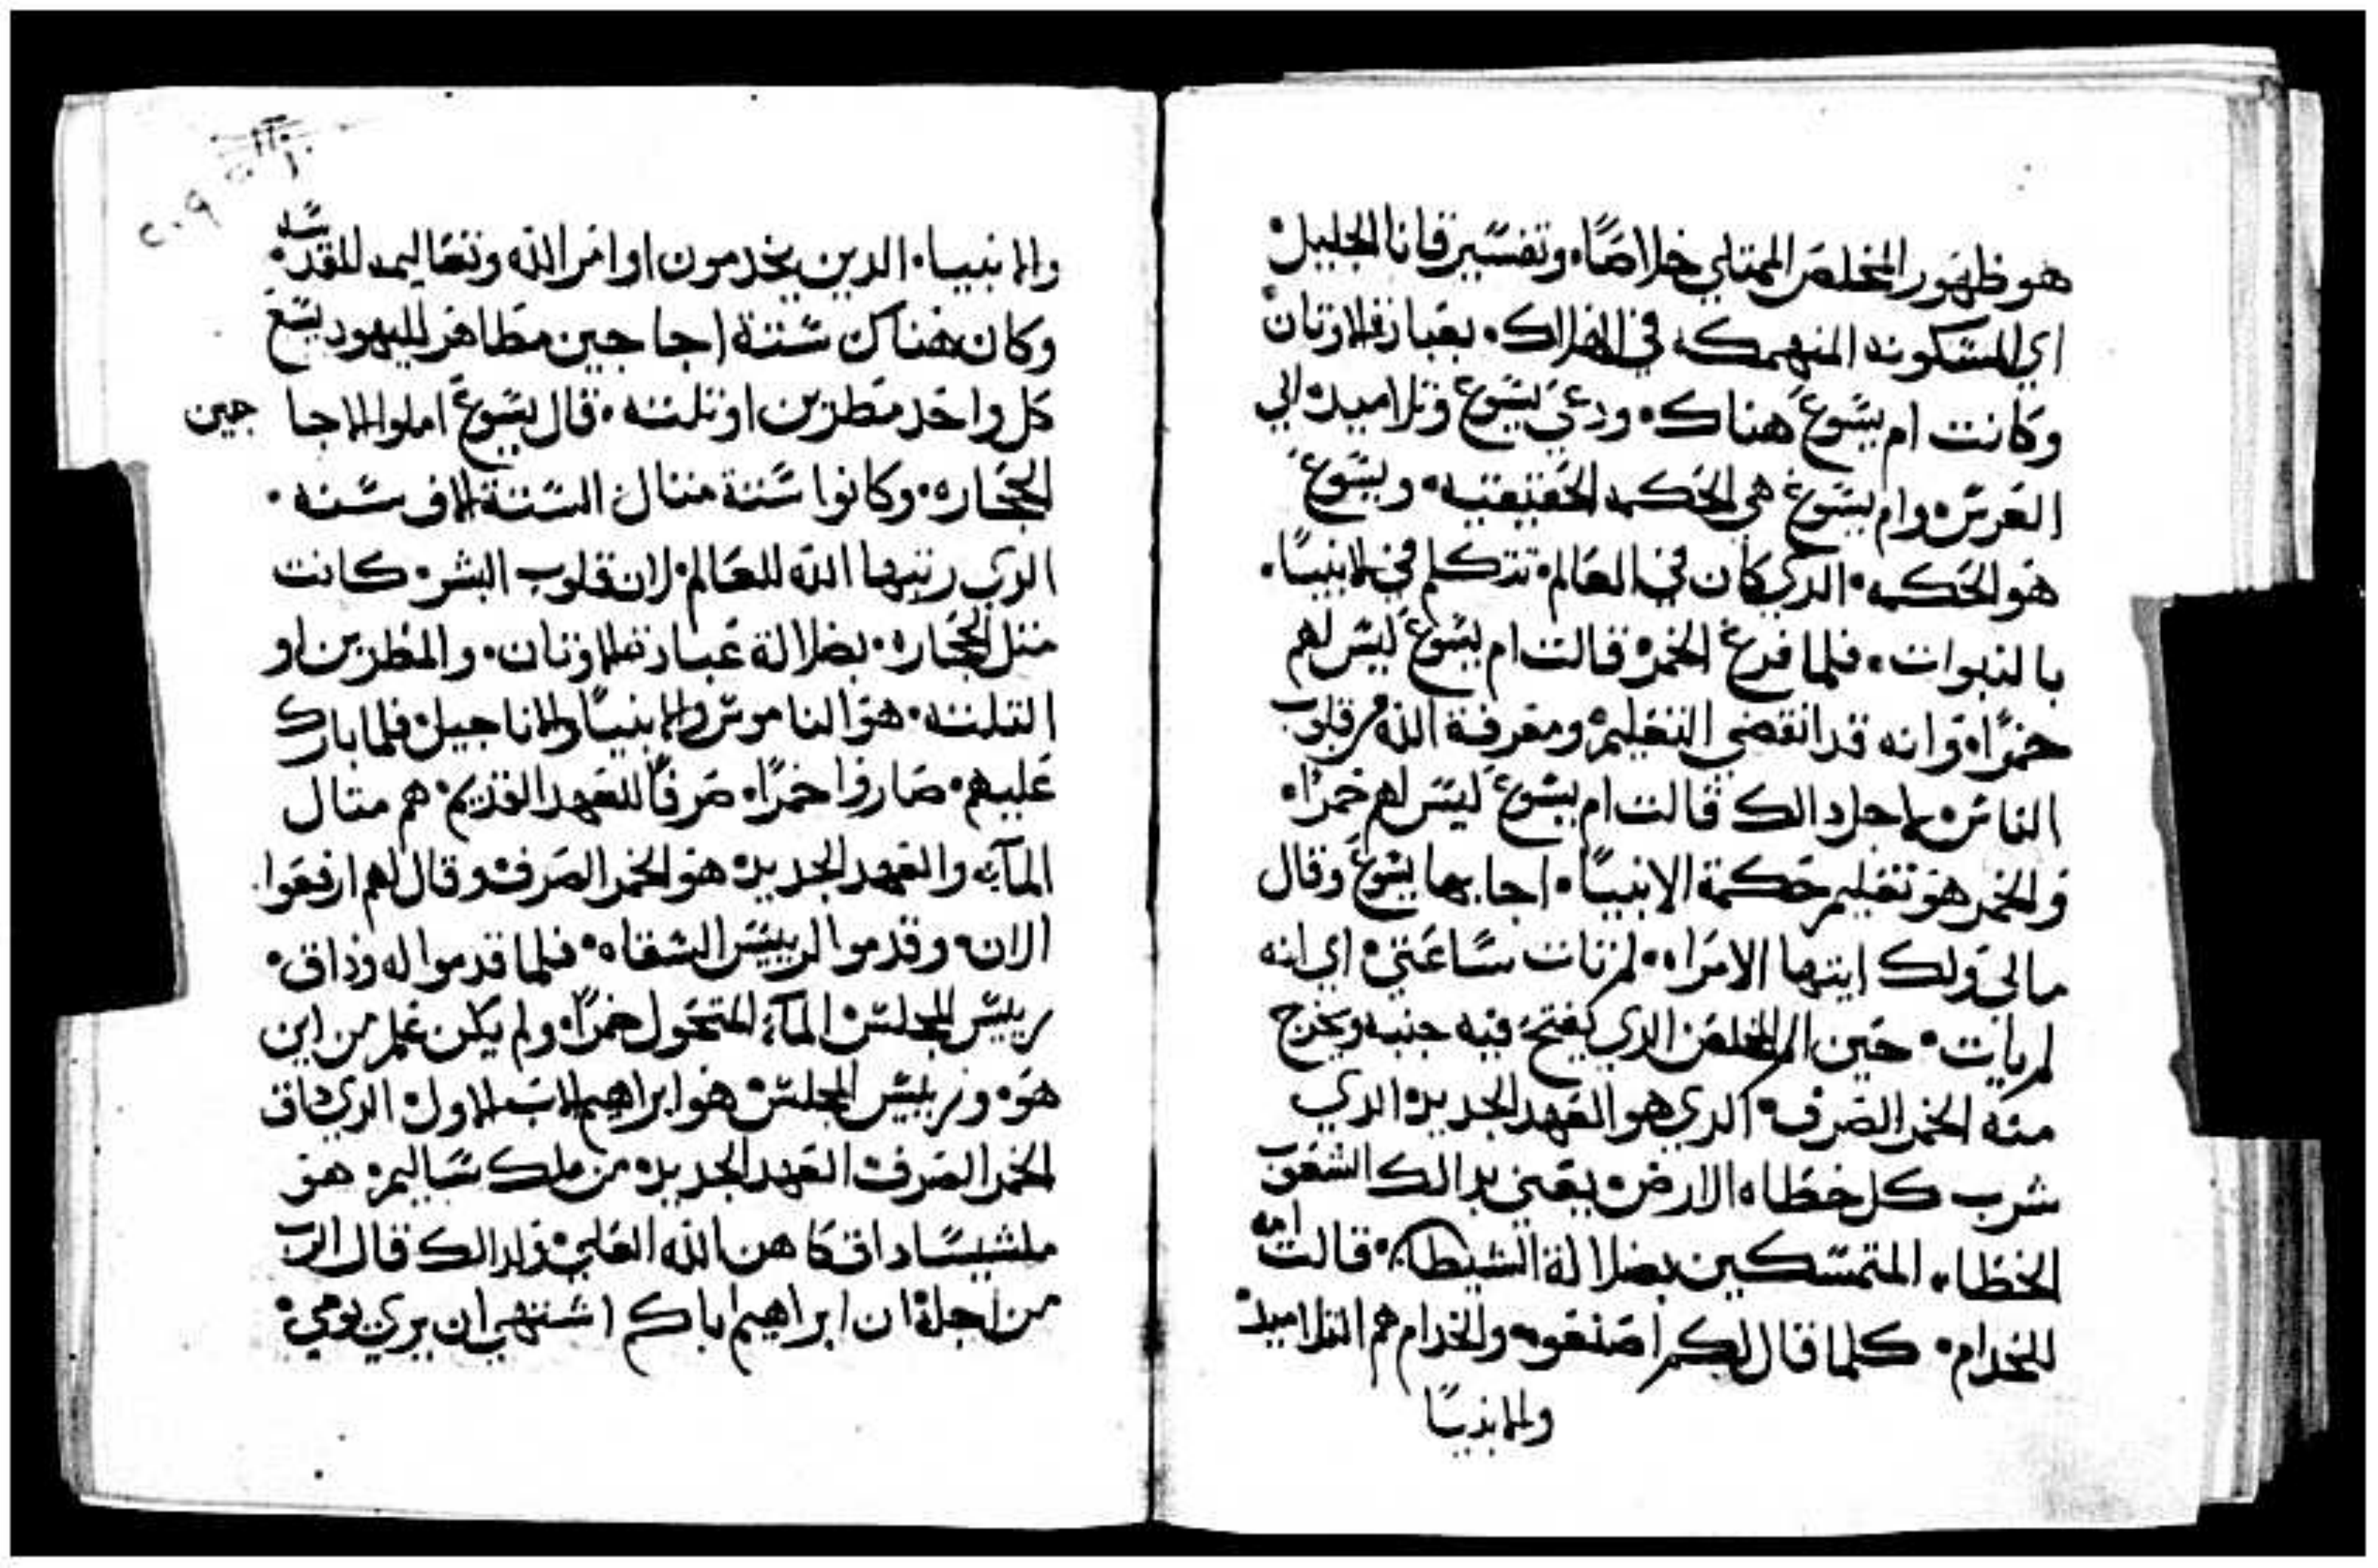 هو ظهور المخلص الممتلي خلاصًا۰ وتفسير قانا الجليل۰
اي المسكونه المنهمكه في الهلاك۰ بعبادة الاوتان۰
وكانت ام يسوع هناك۰ ودعي يسوع وتلاميده الي
العرس۰ وام يسوع هي الحكمه الحقيقيه۰ ويسوع
هو الحكمه۰ الدي كان في العالم۰ تتكلم في الانبيا۰
بالنبوات۰ فلما فرغ الخمر۰ قالت ام يسوع ليس لهم
خمرًا۰ وانه قد انقضي التعليم۰ ومعرفة الله من قلوب
الناس۰ لاجل دالك قالت ام يسوع ليس لهم خمرًا۰
والخمر هو تعليم حكمة الانبيا۰ اجابها يسوع وقال
مالي ولك ايتها الامراه۰ لم تات ساعتي۰ اي انه
لم يات۰ حين المخلص الدي يفتح فيه جنبه ويخرج
منه الخمر الصرف۰ الدي هو العهد الجديد۰ الدي
شرب كل خطاه الارض۰ يعني بدالك الشعوب
الخطاه المتمسكين بضلالة الشيطان۰ قالت امه
للخدام۰ كلما قال لكم اصنعوه والخدام هم التلاميد۰
والانبيا
والانبيا۰ الدين يخدمون اوامر الله وتعاليمه المقدسه۰
وكان هناك ستة اجاجين مطاهر لليهود يسع
كل واحد مطرين او تلته۰ قال يسوع املوا الاجاجين
الحجاره۰ وكانوا ستة متال الستة الاف سنه۰
الدي رتبها الله للعالم۰ لان قلوب البشر۰ كانت
متل الحجاره۰ بضلالة عبادة الاوتان۰ والمطرين او
التلته۰ هو الناموس والانبيا والاناجيل۰ فلما بارك
عليهم۰ صاروا خمرًا۰ صرفًا للعهد القديم۰ هم متال
المآيه والعهد الجديد۰ هو الخمر الصرف۰ وقال لهم ارفعوا
الان۰ وقدموا لرييس السقاه۰ فلما قدموا له وداق۰
رييس المجلس۰ المآء المتحول خمرًا۰ ولم يكن علم من اين
هو۰ ورييس المجلس۰ هو ابراهيم الاب الاول۰ الدي داق
الخمر الصرف۰ العهد الجديد۰ من ملك ساليم۰ هو
ملشيساداق كاهن الله العلي۰ ولدالك قال الرب
من اجله ان ابراهيم اباكم اشتهي ان يري يومي۰